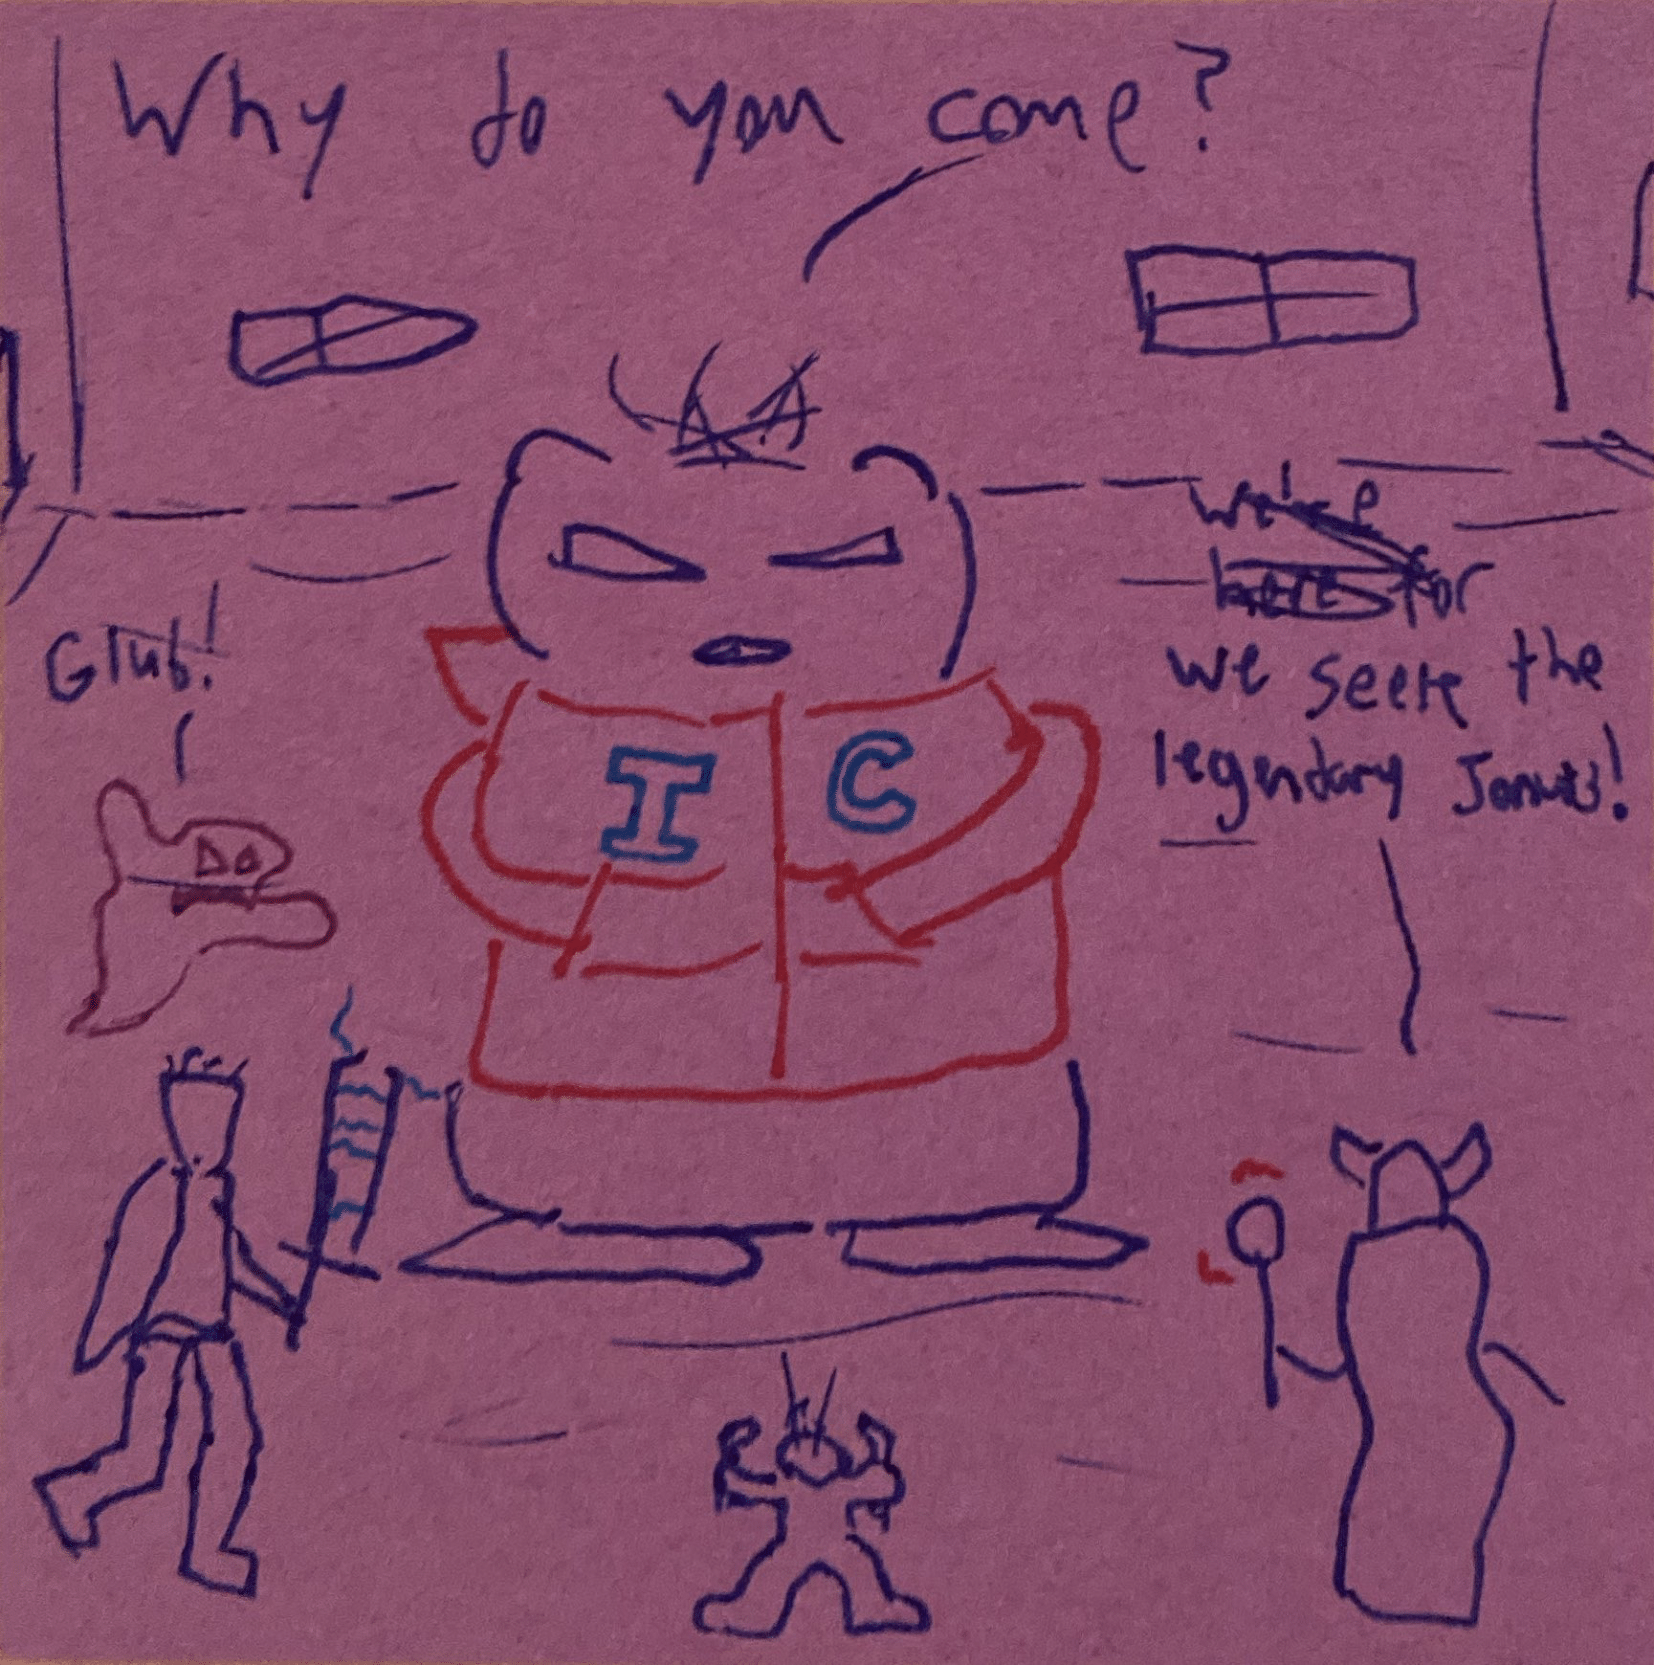 Why do you come?
Glub!
we're
here for
we seek the
legendary Jonuts!
I C